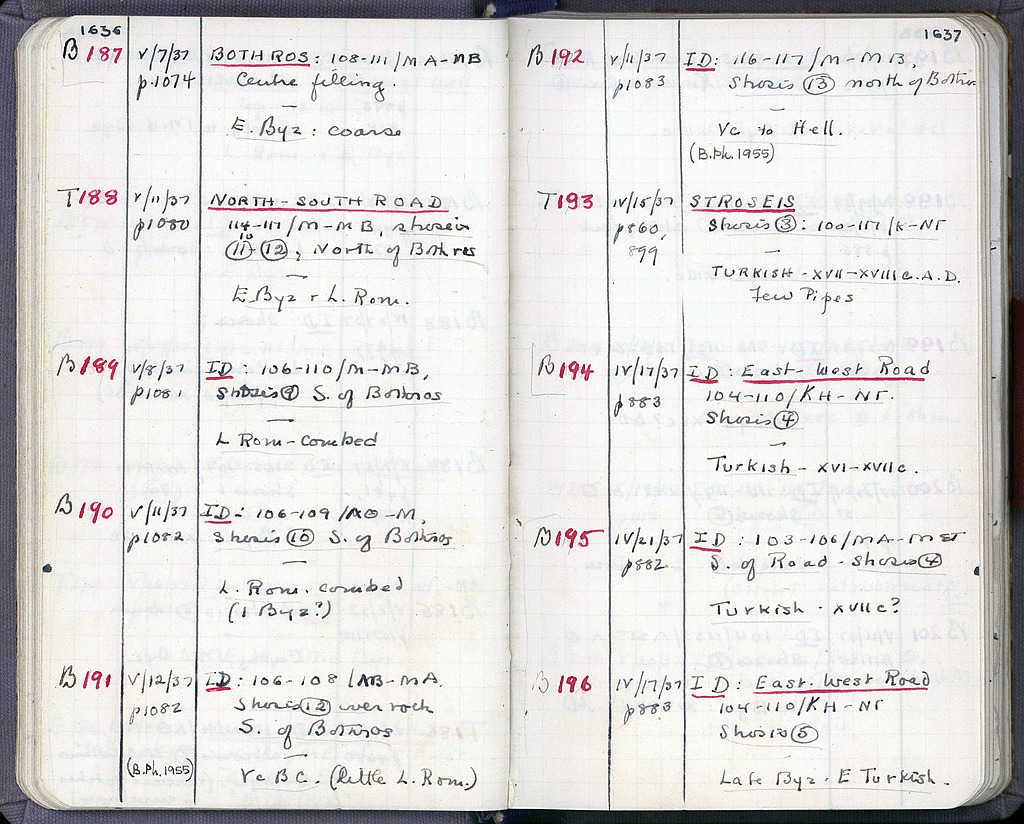 1636
B 187 V/7/37 BOTHROS: 108-111/MA-MB
p.1074 Centre filling.
—
E. Byz: coarse
T 188 V/11/37 NORTH-SOUTH ROAD
p1080 114-117/M-MB, strosis
11 to 12, North of Bothros
—
E. Byz + L. Rom.
B 189 V/8/37 ID: 106-110/M-MB,
p1081 Strosis 9 S. of Bothros
—
L Rom-combed
B 190 V/11/37 ID: 106-109/AO-M,
p1082 Strosis 10 S. of Bothros
—
L. Rom. combed
(1 Byz?)
B 191 V/12/37 ID: 106-108/AB-MA.
p1082 Strosis 12 over rock
S. of Bothros
—
(B.Ph. 1955) Vc B.C. (little L. Rom.)
1637
B 192 V/11/37 ID: 116-117/M-MB,
p1083 Strosis 13 north of Bothros
—
Vc to Hell.
(B.Ph. 1955)
T 193 IV/15/37 STROSEIS
p860, Strosis 3: 100-117/K-NT
899 —
TURKISH-XVII-XVIII c. A.D.
Few Pipes
B 194 IV/17/37 ID: East-West Road
p883 104-110/KH-NT.
Strosis 4
—
Turkish-XVI-XVII c.
B 195 IV/21/37 ID: 103-106/MA-MST
p882 S. of Road-Strosis 4
Turkish. XVII c?
B 196 IV/17/37 ID: East-West Road
p883 104-110/KH-NT
Strosis 5
Late Byz. E Turkish.